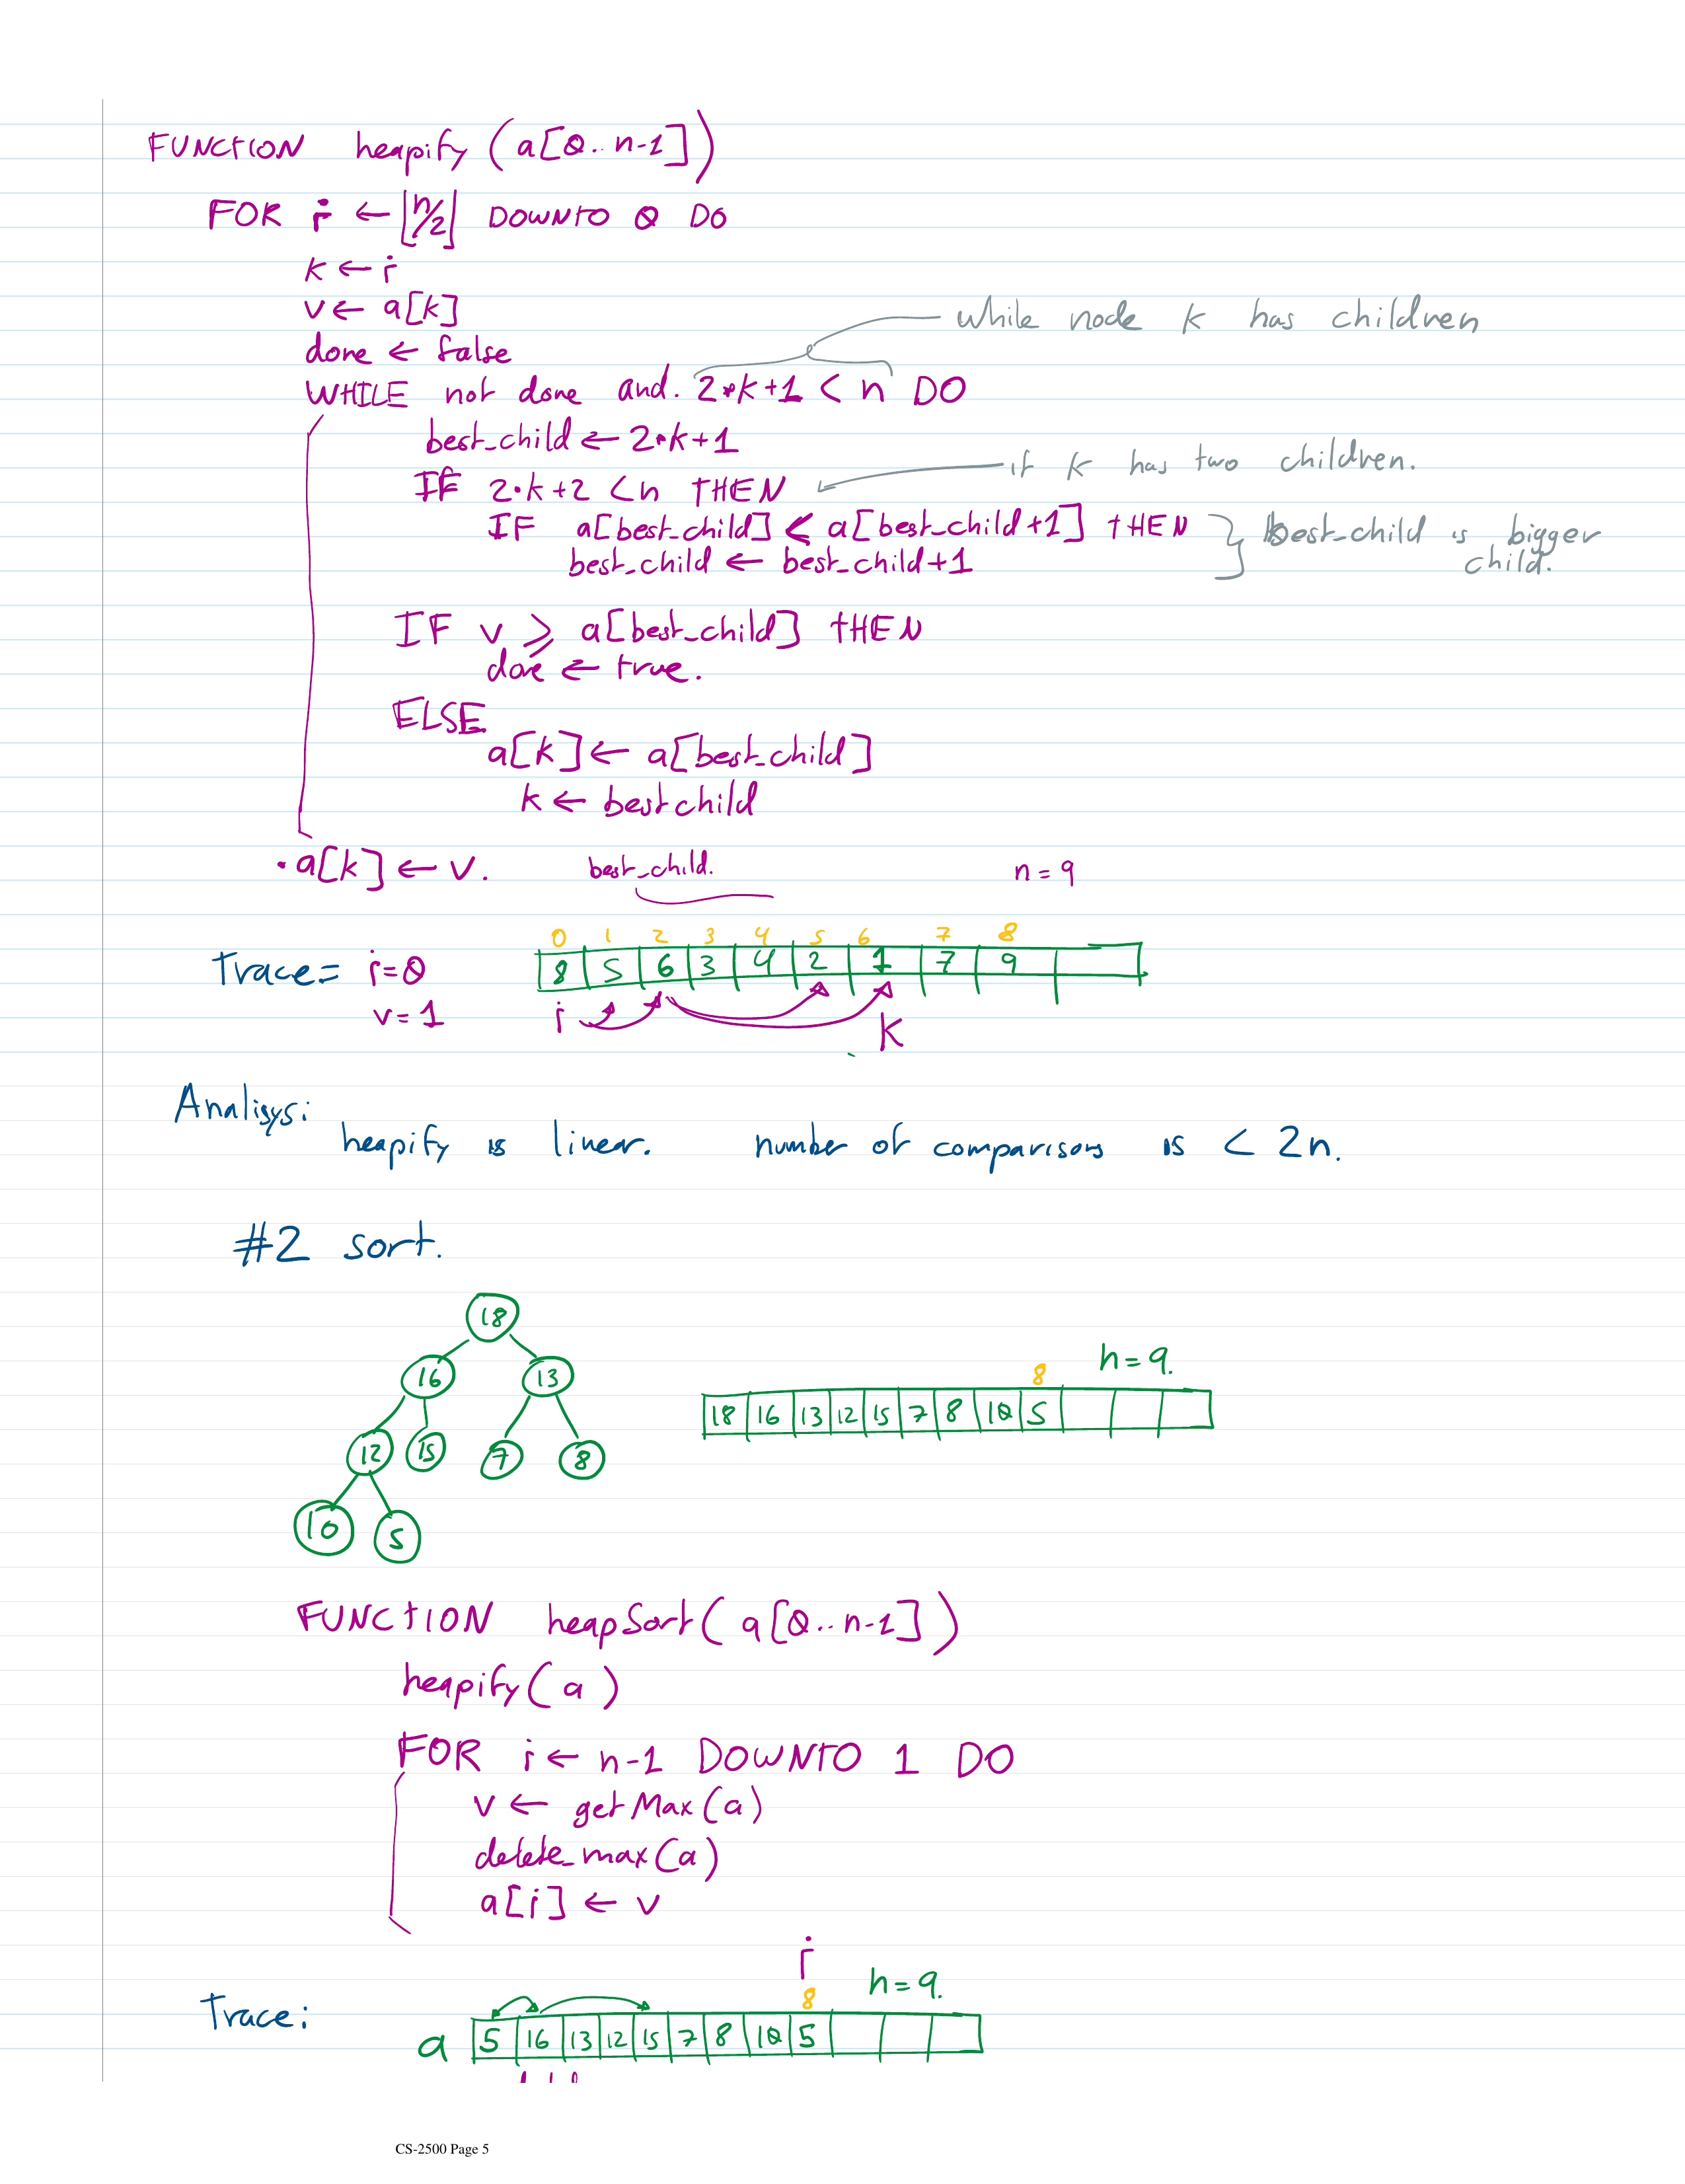 FUNCTION heapify (a[0..n-1])
FOR i ← ⌊n/2⌋ DOWNTO 0 DO
k ← i
v ← a[k]
done ← false
while node k has children
WHILE not done and. 2*k+1 < n DO
best_child ← 2*k+1
if k has two children.
IF 2*k+2 < n THEN
IF a[best_child] < a[best_child+1] THEN
best_child ← best_child+1
best_child is bigger
child.
IF v ≥ a[best_child] THEN
done ← true.
ELSE
a[k] ← a[best_child]
k ← bestchild
a[k] ← v.
best_child.
n = 9
0 1 2 3 4 5 6 7 8
Trace = i=0
8 5 6 3 4 2 1 7 9
v=1
i
k
Analisys:
heapify is linear. number of comparisons is < 2n.
#2 sort.
18
16 13
12 15 7 8
10 5
8 n=9.
18 16 13 12 15 7 8 10 5
FUNCTION heapSort(a[0..n-1])
heapify(a)
FOR i ← n-1 DOWNTO 1 DO
v ← getMax(a)
delete_max(a)
a[i] ← v
i
8 n=9.
Trace:
a 5 16 13 12 15 7 8 10 5
CS-2500 Page 5